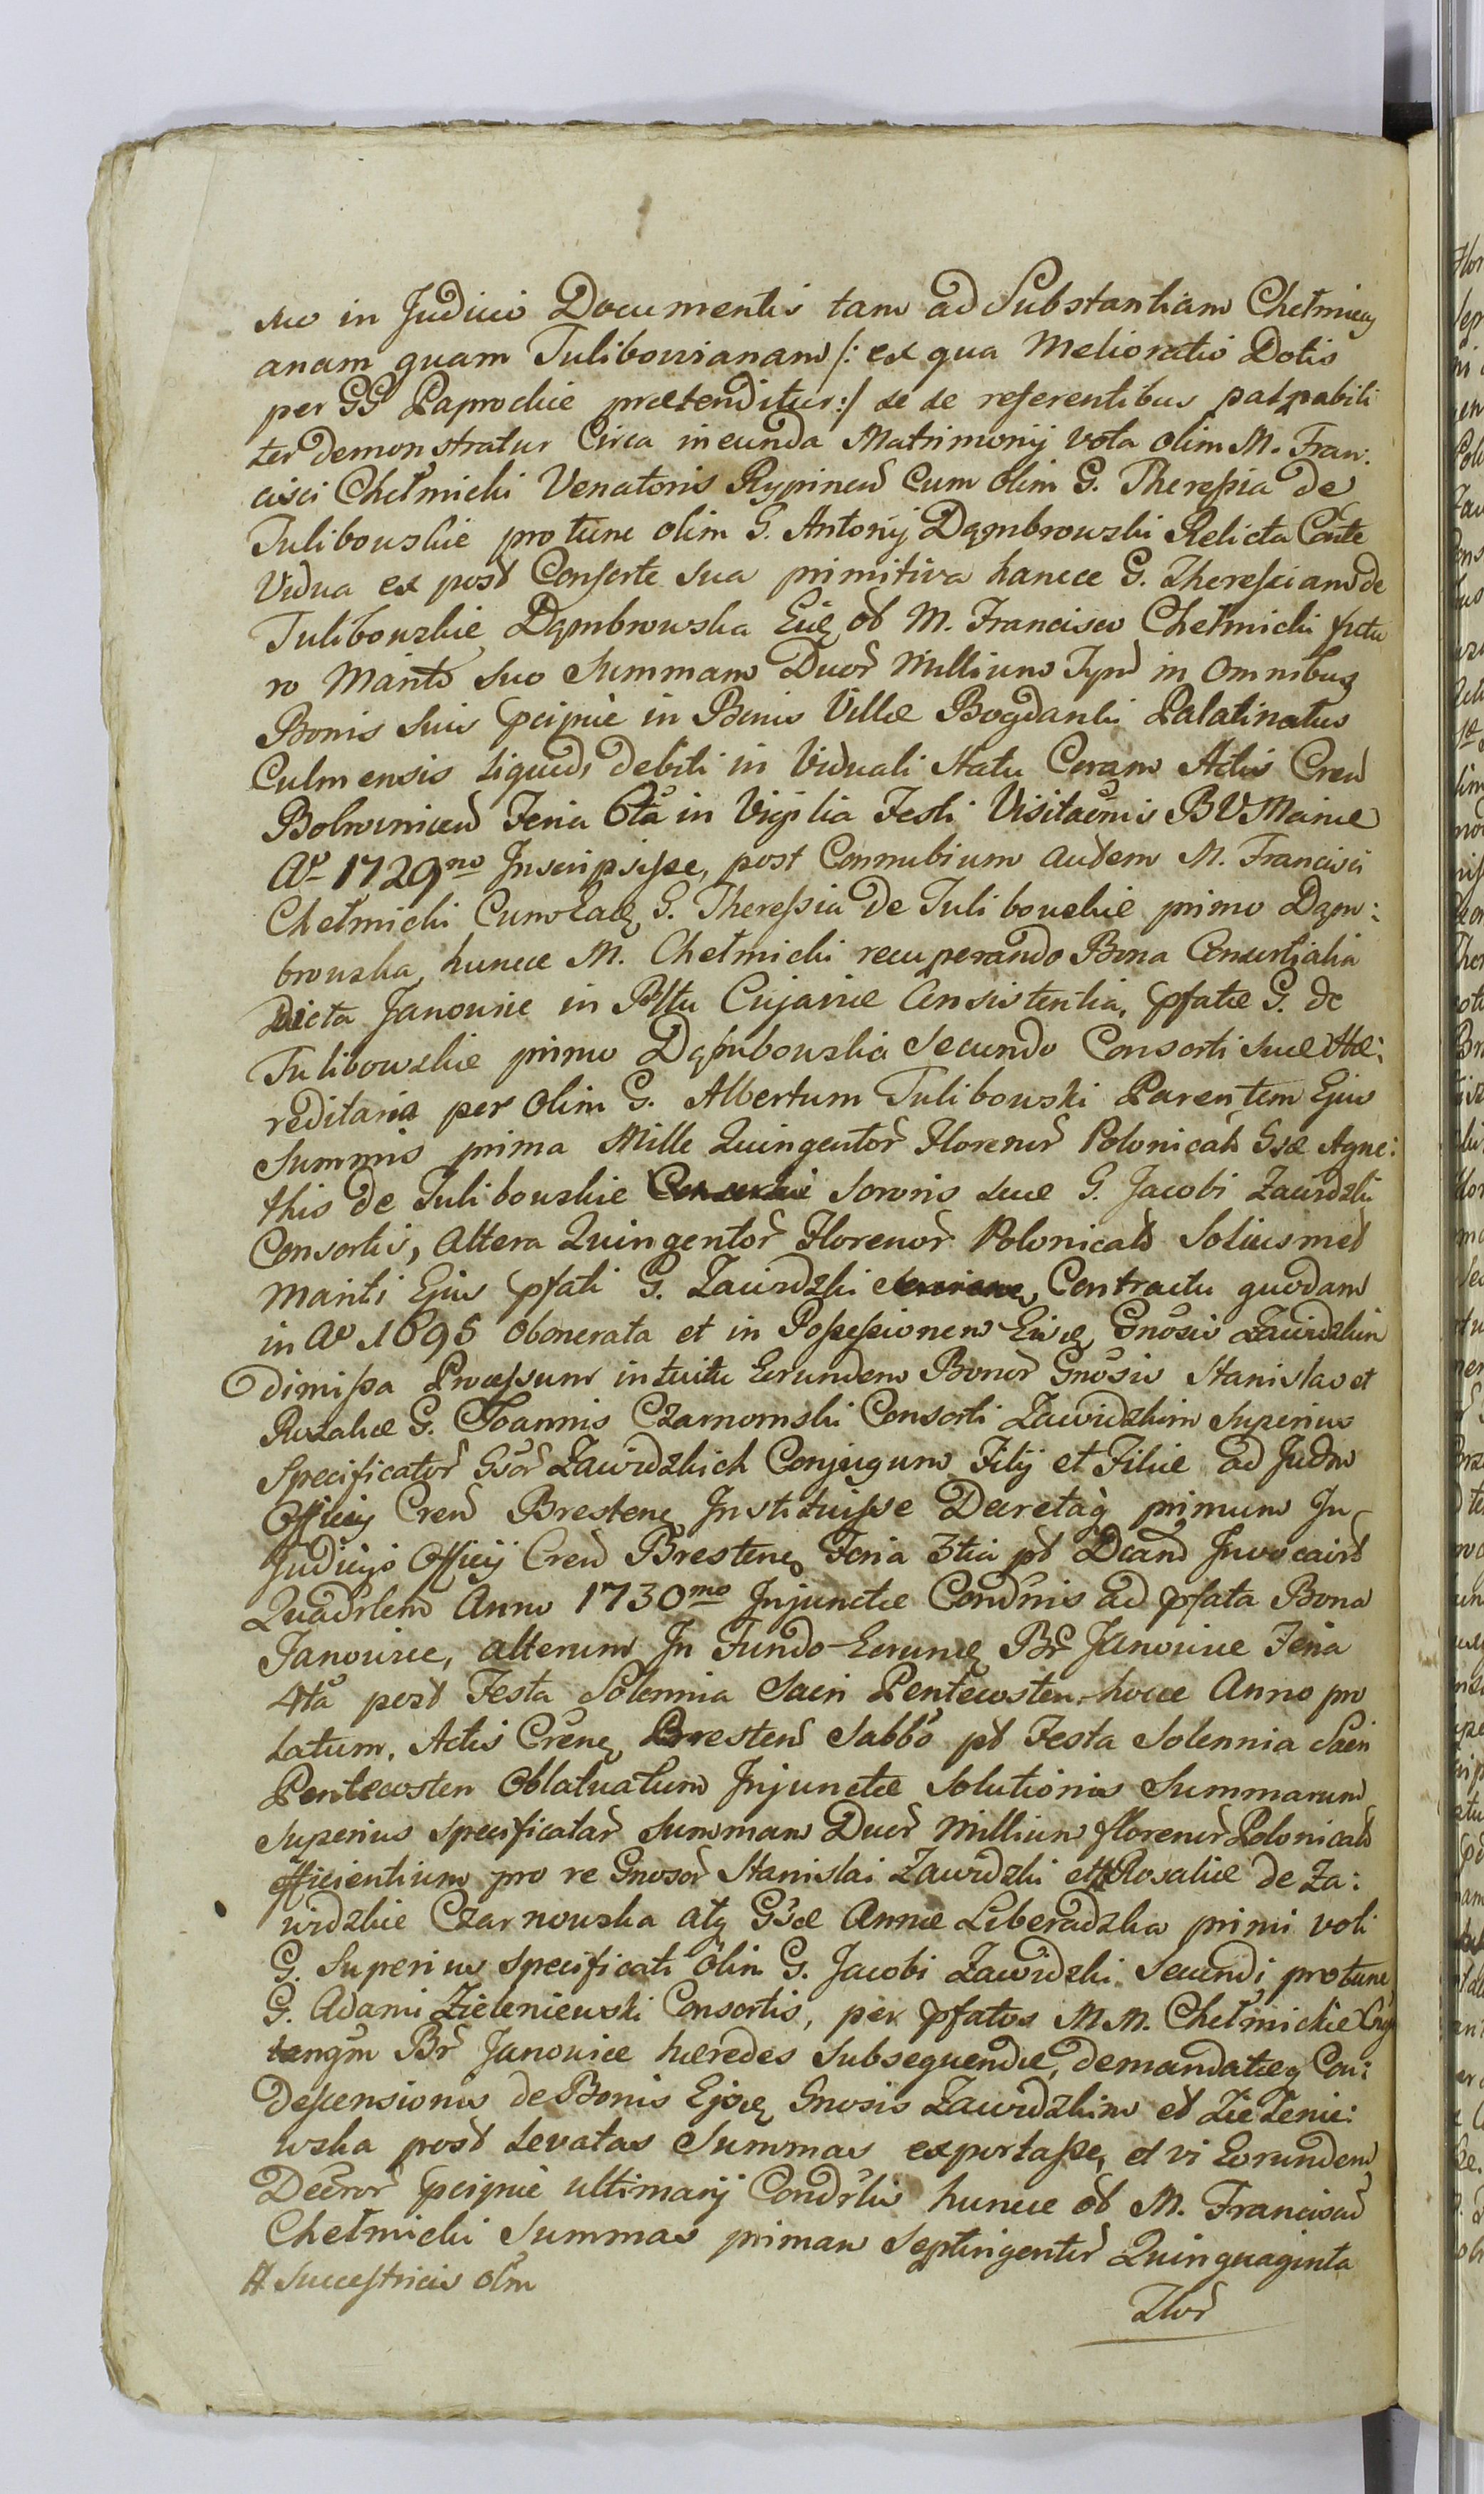 suo in Judicio Documentis tam ad Substantiam Chełmicy
anam quam Tulibovianam /: ex qua Melioratio Dotis
per GG Paprockie praetenditur :/ se se referentibus palpabili
ter demonstratur Circa ineunda Matrimonij vota olim M. Fran:
cisci Chełmicki Venatoris Rypinen Cum olim G. Theressia de
Tulibouskie pro tunc olim G. Antonij Dąmbrowski Relicta Coñte
Vidua ex post Consorte sua primitiva hancce G. Theressiam de
Tulibouskie Dąmbrowska Eidę ob M. Francisco Chełmicki futu
ro Marito suo Summam Duor Millium Tynf in omnibus
Bonis suis pcipuè in Bonis Villae Bogdanki Palatinatus
Culmensis liquidi debiti in Viduali statu Coram Actis Cren
Bobrownicen Feria 6ta in Vigilia Festi Visitaõnis BVMariae
Aº 1729no Inscripsisse, post Connubium autem M. Francisci
Chełmicki Cum Eadę G. Theressia de Tulibouskie primo Dąm:
browska, huncce M. Chełmicki recuperando Bona Consortialia
dicta Janowice in Plttu Cujaviae Consistentia, pfatae G. de
Tulibowskie primo Dąmbowska Secundo Consorti suae Hae:
reditaria per olim G. Albertum Tulibowski Parentem Ejus
Summis prima Mille Quingentor Florenor Polonicali Gsae Agne:
this de Tulibouskie Sororis suae G. Jacobi Zawidzki
Consortis, Altera Quingentor Florenor Polonicali Soliusmet
Mariti Ejus pfati G. Zawidzki Contractu quodam
in Aº 1695 Obonerata et in Possessionem Eisdę Gnosis Zawidzkim
dimissa Processum intuitu Eorundem Bonor Gnosis Stanislao et
Rozaliae G. Joannis Czarnomski Consorti Zawidzkim Superius
Specificator Gsor Zawidzkich Conjugum Filij et Filiae ad Judm
Officij Cren Bresten Instituisse Decretaq primum In
Judicijs Officij Cren Bresten Feria 3tia pt Dcam Invocavit
Quadrlem Anno 1730mo Injunctae Condrnis ad pfata Bona
Janowice, alterum In Fundo Eorundę Br Janowice Feria
4ta post Festa Solennia Sacri Pentecosten hocce Anno pro
latum, Actis Cren Bresten Sabbo pt Festa Solennia Sacri
Pentecosten Oblatuatum Injunctae Solutionis Summarum
Superius specificatar Summam Duor Millium florenor Polonicali
efficientium pro re Gnosor Stanislai Zawidzki et # Rosaliae de Za:
widzkie Czarnouska atq Gsae Annae Liberadzka primi voti
G. Superius specificati olim G. Jacobi Zawidzki Secundi, protunc
G. Adami Zieleniewski Consortis, per pfatos M.M. Chełmickie
tanqm Br Janowice haeredes Subsequendae, demandataeq Con:
descensionis de Bonis Ejsdę Gnosis Zawidzkim et Zielenie:
wska post levatas Summas exportasse, et vi Eorundem
Decror pcipuè ultimarij Condrlis huncce ob M. Franciscum
Chełmicki Summas primam Septingentor Quinquaginta
# Successtricis olim
Flor